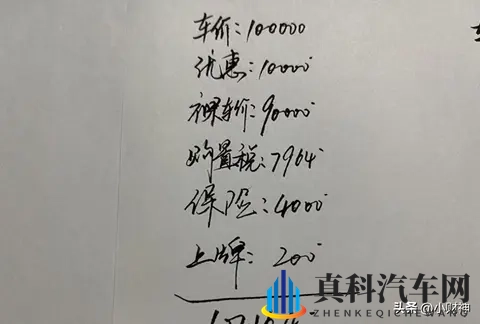 车价:100000
优惠:10000
裸车价:90000
购置税:7964
保险:4000
上牌:200
真科汽车网
ZHENKEQICHEWANG
头条 @小财神